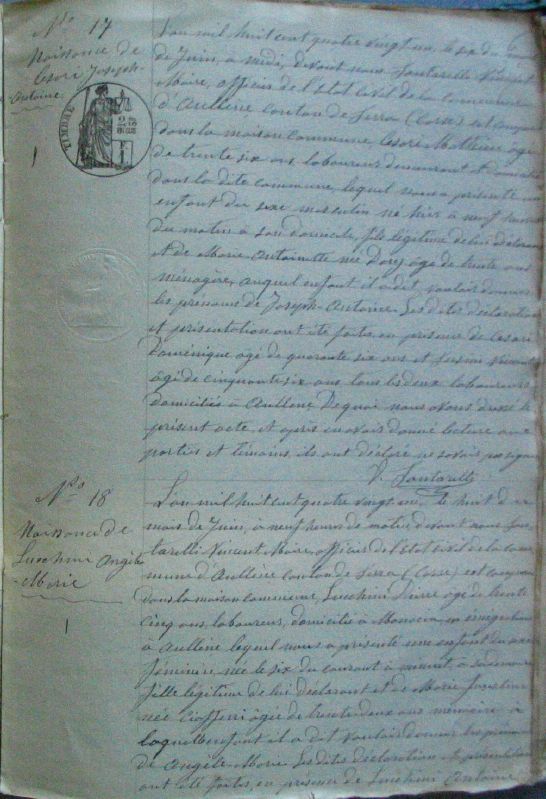 No 17
Naissance de
Cesari Joseph-
Antoine
TIMBRE
L'an mil huit cent quatre vingt un, le six du mois
de Juin, à midi, devant nous Santarelli Vincent
Maire, officier de l'Etat civil de la commune
d'Aullène canton de Serra (Corse) est comparu
dans la maison commune, Cesari Mathieu âgé
de trente six ans laboureur demeurant et domicilié
dans la dite commune, lequel nous a présenté un
enfant du sexe masculin né hier à neuf heures
du matin à son domicile, fils légitime de lui déclarant
et de Marie Antoinette née âgée de trente ans
ménagère, auquel enfant il a dit vouloir donner
les prénoms de Joseph-Antoine. Les dites déclaration
et présentation ont été faites en présence de Cesari
Dominique âgé de quarante six ans et Vincent
âgé de cinquante six ans tous les deux laboureurs
domiciliés à Aullène. De quoi nous avons dressé le
présent acte, et après en avoir donné lecture aux
parties et témoins ils ont déclaré ne savoir pas signer
V. Santarelli
No 18
Naissance de
Lucchini Angèle
-Marie
L'an mil huit cent quatre vingt un, le huit du
mois de Juin, à neuf heures du matin, devant nous San-
tarelli Vincent Maire, officier de l'Etat civil de la com-
mune d'Aullène canton de Serra (Corse) est comparu
dans la maison commune, Lucchini Pierre âgé de trente
cinq ans, laboureur, domicilié à Monaccia en
à Aullène lequel nous a présenté une enfant du sexe
féminin née le six du courant à minuit à sa demeure
fille légitime de lui déclarant et de Marie
née âgée de trente deux ans ménagère à
laquelle enfant il a dit vouloir donner les prénoms
de Angèle-Marie. Les dites déclaration et présentation
ont été faites en présence de Lucchini Antoine